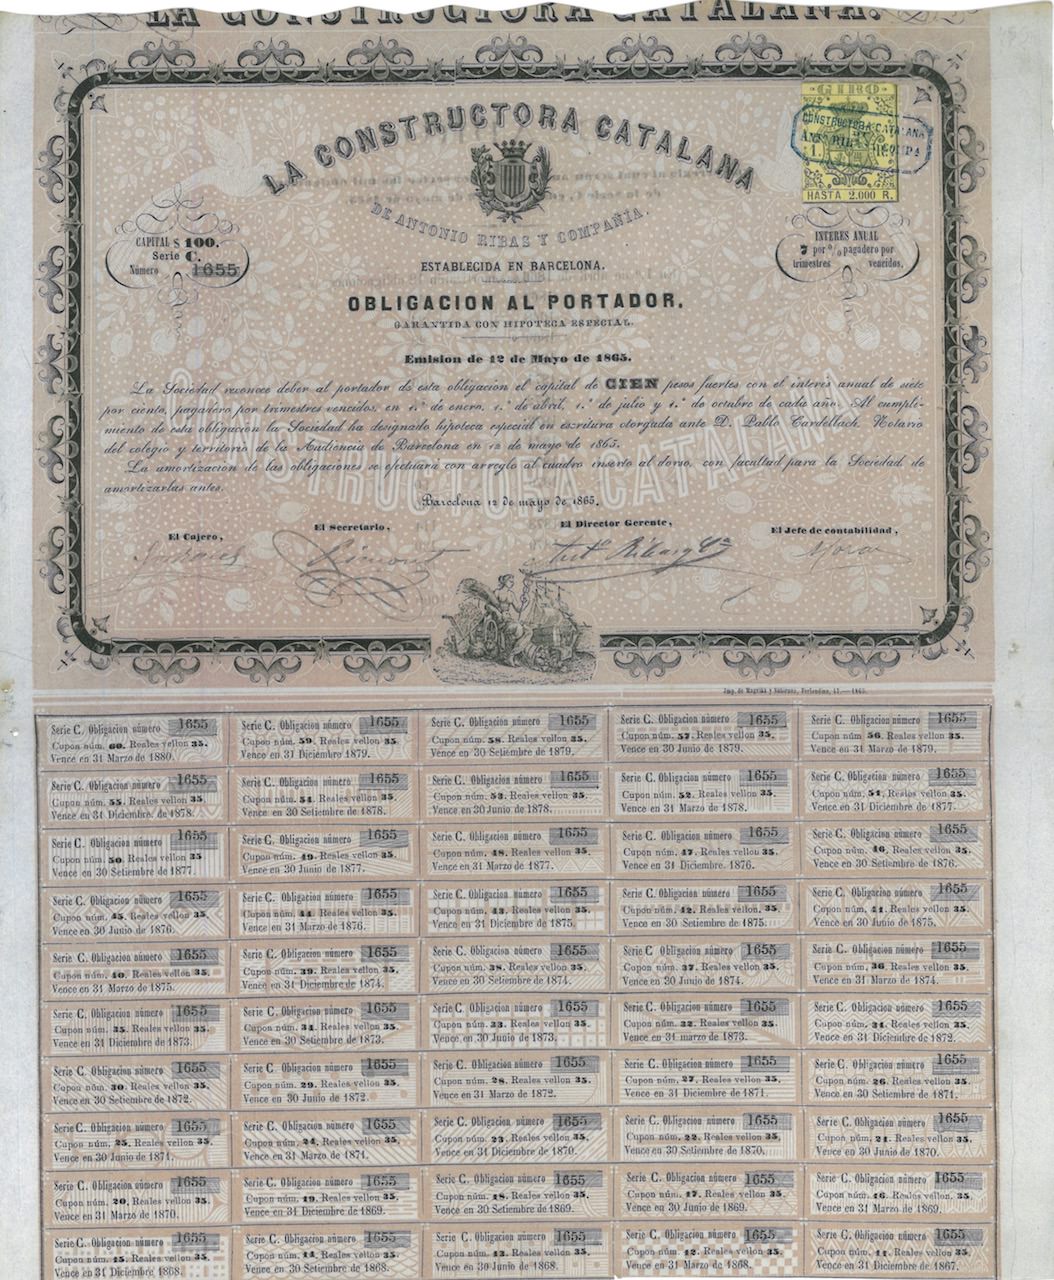 LA CONSTRUCTORA CATALANA.
LA CONSTRUCTORA CATALANA
DE ANTONIO RIBAS Y COMPAÑIA.
ESTABLECIDA EN BARCELONA.
CAPITAL $ 100.
Serie C.
Número 1655
GIRO
CONSTRUCTORA CATALANA
HASTA 2.000 R.
INTERES ANUAL
7 por % pagadero por
trimestres vencidos.
OBLIGACION AL PORTADOR.
GARANTIDA CON HIPOTECA ESPECIAL.
Emision de 12 de Mayo de 1865.
La Sociedad reconoce deber al portador de esta obligacion el capital de CIEN pesos fuertes con el interés anual de siete
por ciento, pagadero por trimestres vencidos, en 1.º de enero, 1.º de abril, 1.º de julio y 1.º de octubre de cada año. Al cumpli-
miento de esta obligacion la Sociedad ha designado hipoteca especial en escritura otorgada ante D. Pablo Cardellach, Notario
del colegio y territorio de la Audiencia de Barcelona en 12 de mayo de 1865.
La amortizacion de las obligaciones se efectuará con arreglo al cuadro inserto al dorso, con facultad para la Sociedad de
amortizarlas antes.
Barcelona 12 de mayo de 1865.
El Cajero,
El Secretario,
El Director Gerente,
El Jefe de contabilidad,
Ant.º Ribas y C.ª
CONSTRUCTORA CATALANA
Imp. de Magriñá y Subirana, Ferlandina, 17.—1865.
Serie C. Obligacion número 1655
Cupon núm. 60. Reales vellon 35.
Vence en 31 Marzo de 1880.
Serie C. Obligacion número 1655
Cupon núm. 59. Reales vellon 35.
Vence en 31 Diciembre de 1879.
Serie C. Obligacion número 1655
Cupon núm. 58. Reales vellon 35.
Vence en 30 Setiembre de 1879.
Serie C. Obligacion número 1655
Cupon núm. 57. Reales vellon 35.
Vence en 30 Junio de 1879.
Serie C. Obligacion número 1655
Cupon núm. 56. Reales vellon 35.
Vence en 31 Marzo de 1879.
Serie C. Obligacion número 1655
Cupon núm. 55. Reales vellon 35.
Vence en 31 Diciembre. de 1878.
Serie C. Obligacion número 1655
Cupon núm. 54. Reales vellon 35.
Vence en 30 Setiembre de 1878.
Serie C. Obligacion número 1655
Cupon núm. 53. Reales vellon 35.
Vence en 30 Junio de 1878.
Serie C. Obligacion número 1655
Cupon núm. 52. Reales vellon 35.
Vence en 31 Marzo de 1878.
Serie C. Obligacion número 1655
Cupon núm. 51. Reales vellon 35.
Vence en 31 Diciembre de 1877.
Serie C. Obligacion número 1655
Cupon núm. 50. Reales vellon 35
Vence en 30 Setiembre de 1877.
Serie C. Obligacion número 1655
Cupon núm. 49. Reales vellon 35.
Vence en 30 Junio de 1877.
Serie C. Obligacion número 1655
Cupon núm. 48. Reales vellon 35.
Vence en 31 Marzo de 1877.
Serie C. Obligacion número 1655
Cupon núm. 47. Reales vellon 35.
Vence en 31 Diciembre. 1876.
Serie C. Obligacion número 1655
Cupon núm. 46. Reales vellon 35.
Vence en 30 Setiembre de 1876.
Serie C. Obligacion número 1655
Cupon núm. 45. Reales vellon 35.
Vence en 30 Junio de 1876.
Serie C. Obligacion número 1655
Cupon núm. 44. Reales vellon 35.
Vence en 31 Marzo de 1876.
Serie C. Obligacion número 1655
Cupon núm. 43. Reales vellon 35.
Vence en 31 Diciembre de 1875.
Serie C. Obligacion número 1655
Cupon núm. 42. Reales vellon. 35.
Vence en 30 Setiembre de 1875.
Serie C. Obligacion número 1655
Cupon núm. 41. Reales vellon 35.
Vence en 30 Junio de 1875.
Serie C. Obligacion número 1655
Cupon núm. 40. Reales vellon 35.
Vence en 31 Marzo de 1875.
Serie C. Obligacion número 1655
Cupon núm. 39. Reales vellon 35.
Vence en 31 Diciembre de 1874
Serie C. Obligacion número 1655
Cupon núm. 38. Reales vellon 35.
Vence en 30 Setiembre de 1874.
Serie C. Obligacion número 1655
Cupon núm. 37. Reales vellon 35.
Vence en 30 Junio de 1874.
Serie C. Obligacion número 1655
Cupon núm. 36 Reales vellon 35.
Vence en 31 Marzo de 1874.
Serie C. Obligacion número 1655
Cupon núm. 35. Reales vellon 35.
Vence en 31 Diciembre de 1873
Serie C. Obligacion número 1655
Cupon núm. 34. Reales vellon 35.
Vence en 30 Setiembre de 1873.
Serie C. Obligacion número 1655
Cupon núm. 33. Reales vellon 35.
Vence en 30 Junio de 1873.
Serie C. Obligacion número 1655
Cupon núm. 32. Reales vellon 35.
Vence en 31 marzo de 1873.
Serie C. Obligacion número 1655
Cupon núm. 31. Reales vellon 35.
Vence en 31 Diciembre de 1872.
Serie C. Obligacion número 1655
Cupon núm. 30. Reales vellon 35.
Vence en 30 Setiembre de 1872.
Serie C. Obligacion número 1655
Cupon núm. 29. Reales vellon 35.
Vence en 30 Junio de 1872.
Serie C. Obligacion número 1655
Cupon núm. 28. Reales vellon 35.
Vence en 31 Marzo de 1872.
Serie C. Obligacion número 1655
Cupon núm. 27. Reales vellon 35.
Vence en 31 Diciembre de 1871.
Serie C. Obligacion número 1655
Cupon núm. 26. Reales vellon 35.
Vence en 30 Setiembre de 1871.
Serie C. Obligacion número 1655
Cupon núm. 25. Reales vellon 35.
Vence en 30 Junio de 1871.
Serie C. Obligacion número 1655
Cupon núm. 24. Reales vellon 35.
Vence en 31 Marzo de 1871.
Serie C. Obligacion número 1655
Cupon núm. 23 Reales vellon 35.
Vence en 31 Diciembre de 1870.
Serie C. Obligacion número 1655
Cupon núm. 22. Reales vellon 35.
Vence en 30 Setiembre de 1870.
Serie C. Obligacion número 1655
Cupon núm. 21. Reales vellon 35.
Vence en 30 Junio de 1870.
Serie C. Obligacion número 1655
Cupon núm. 20. Reales vellon 35.
Vence en 31 Marzo de 1870.
Serie C. Obligacion número 1655
Cupon núm. 19. Reales vellon 35.
Vence en 31 Diciembre de 1869.
Serie C. Obligacion número 1655
Cupon núm. 18. Reales vellon 35.
Vence en 30 Setiembre de 1869.
Serie C. Obligacion número 1655
Cupon núm. 17. Reales vellon 35.
Vence en 30 Junio de 1869.
Serie C. Obligacion número 1655
Cupon núm. 16. Reales vellon 35.
Vence en 31 Marzo de 1869.
Serie C. Obligacion número 1655
Cupon núm. 15. Reales vellon 35.
Vence en 31 Diciembre de 1868.
Serie C. Obligacion número 1655
Cupon núm. 14. Reales vellon 35.
Vence en 30 Setiembre de 1868.
Serie C. Obligacion número 1655
Cupon núm. 13. Reales vellon 35.
Vence en 30 Junio de 1868.
Serie C. Obligacion número 1655
Cupon núm. 12. Reales vellon 35.
Vence en 31 Marzo de 1868.
Serie C. Obligacion número 1655
Cupon núm. 11. Reales vellon 35.
Vence en 31 Diciembre de 1867.